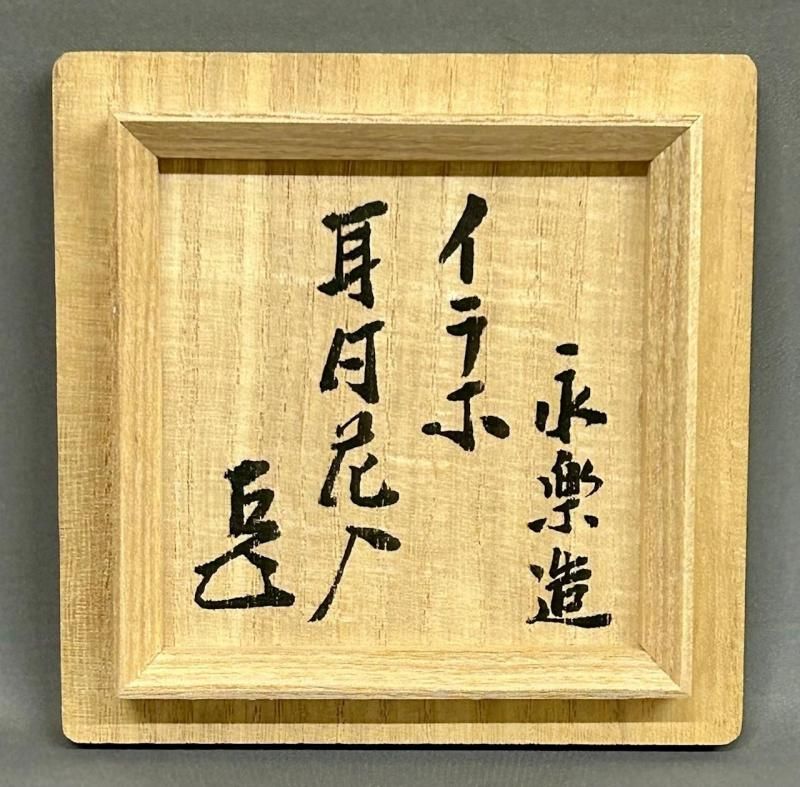 永樂造
イラホ
耳付花入